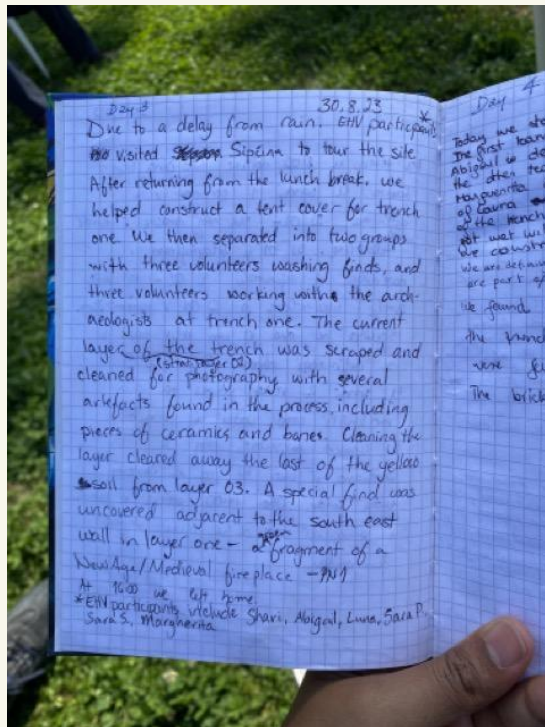 Day 3 30.8.23
Due to a delay from rain. EHV participants*
visited Sipćina to tour the site
After returning from the lunch break, we
helped construct a tent cover for trench
one. We then separated into two groups
with three volunteers washing finds, and
three volunteers working with the arch-
aeologists at trench one. The current
layer of the trench was scraped and
cleaned for photography with several
artefacts found in the process, including
pieces of ceramics and bones. Cleaning the
layer cleared away the last of the yellow
soil from layer 03. A special find was
uncovered adjacent to the south east
wall in layer one - a fragment of a
New Age/Medieval fireplace - PN1
At 16:00 we left home.
*EHV participants include Shavi, Abigail, Luna, Sara P.
Sara S., Margherita
Day 4
Today we
the first
Abigail
the
Margherita
of Laura
of the trench
wet
we
we are
are part
we found
the
were
The brick